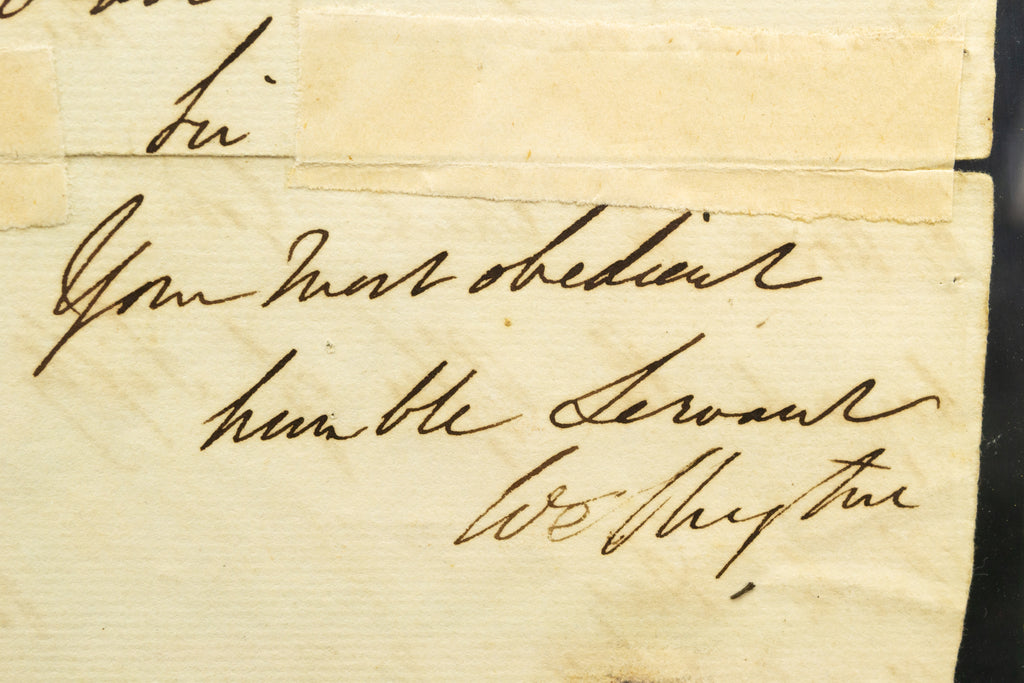 Sir
Your most obedient
humble Servant
Wellington